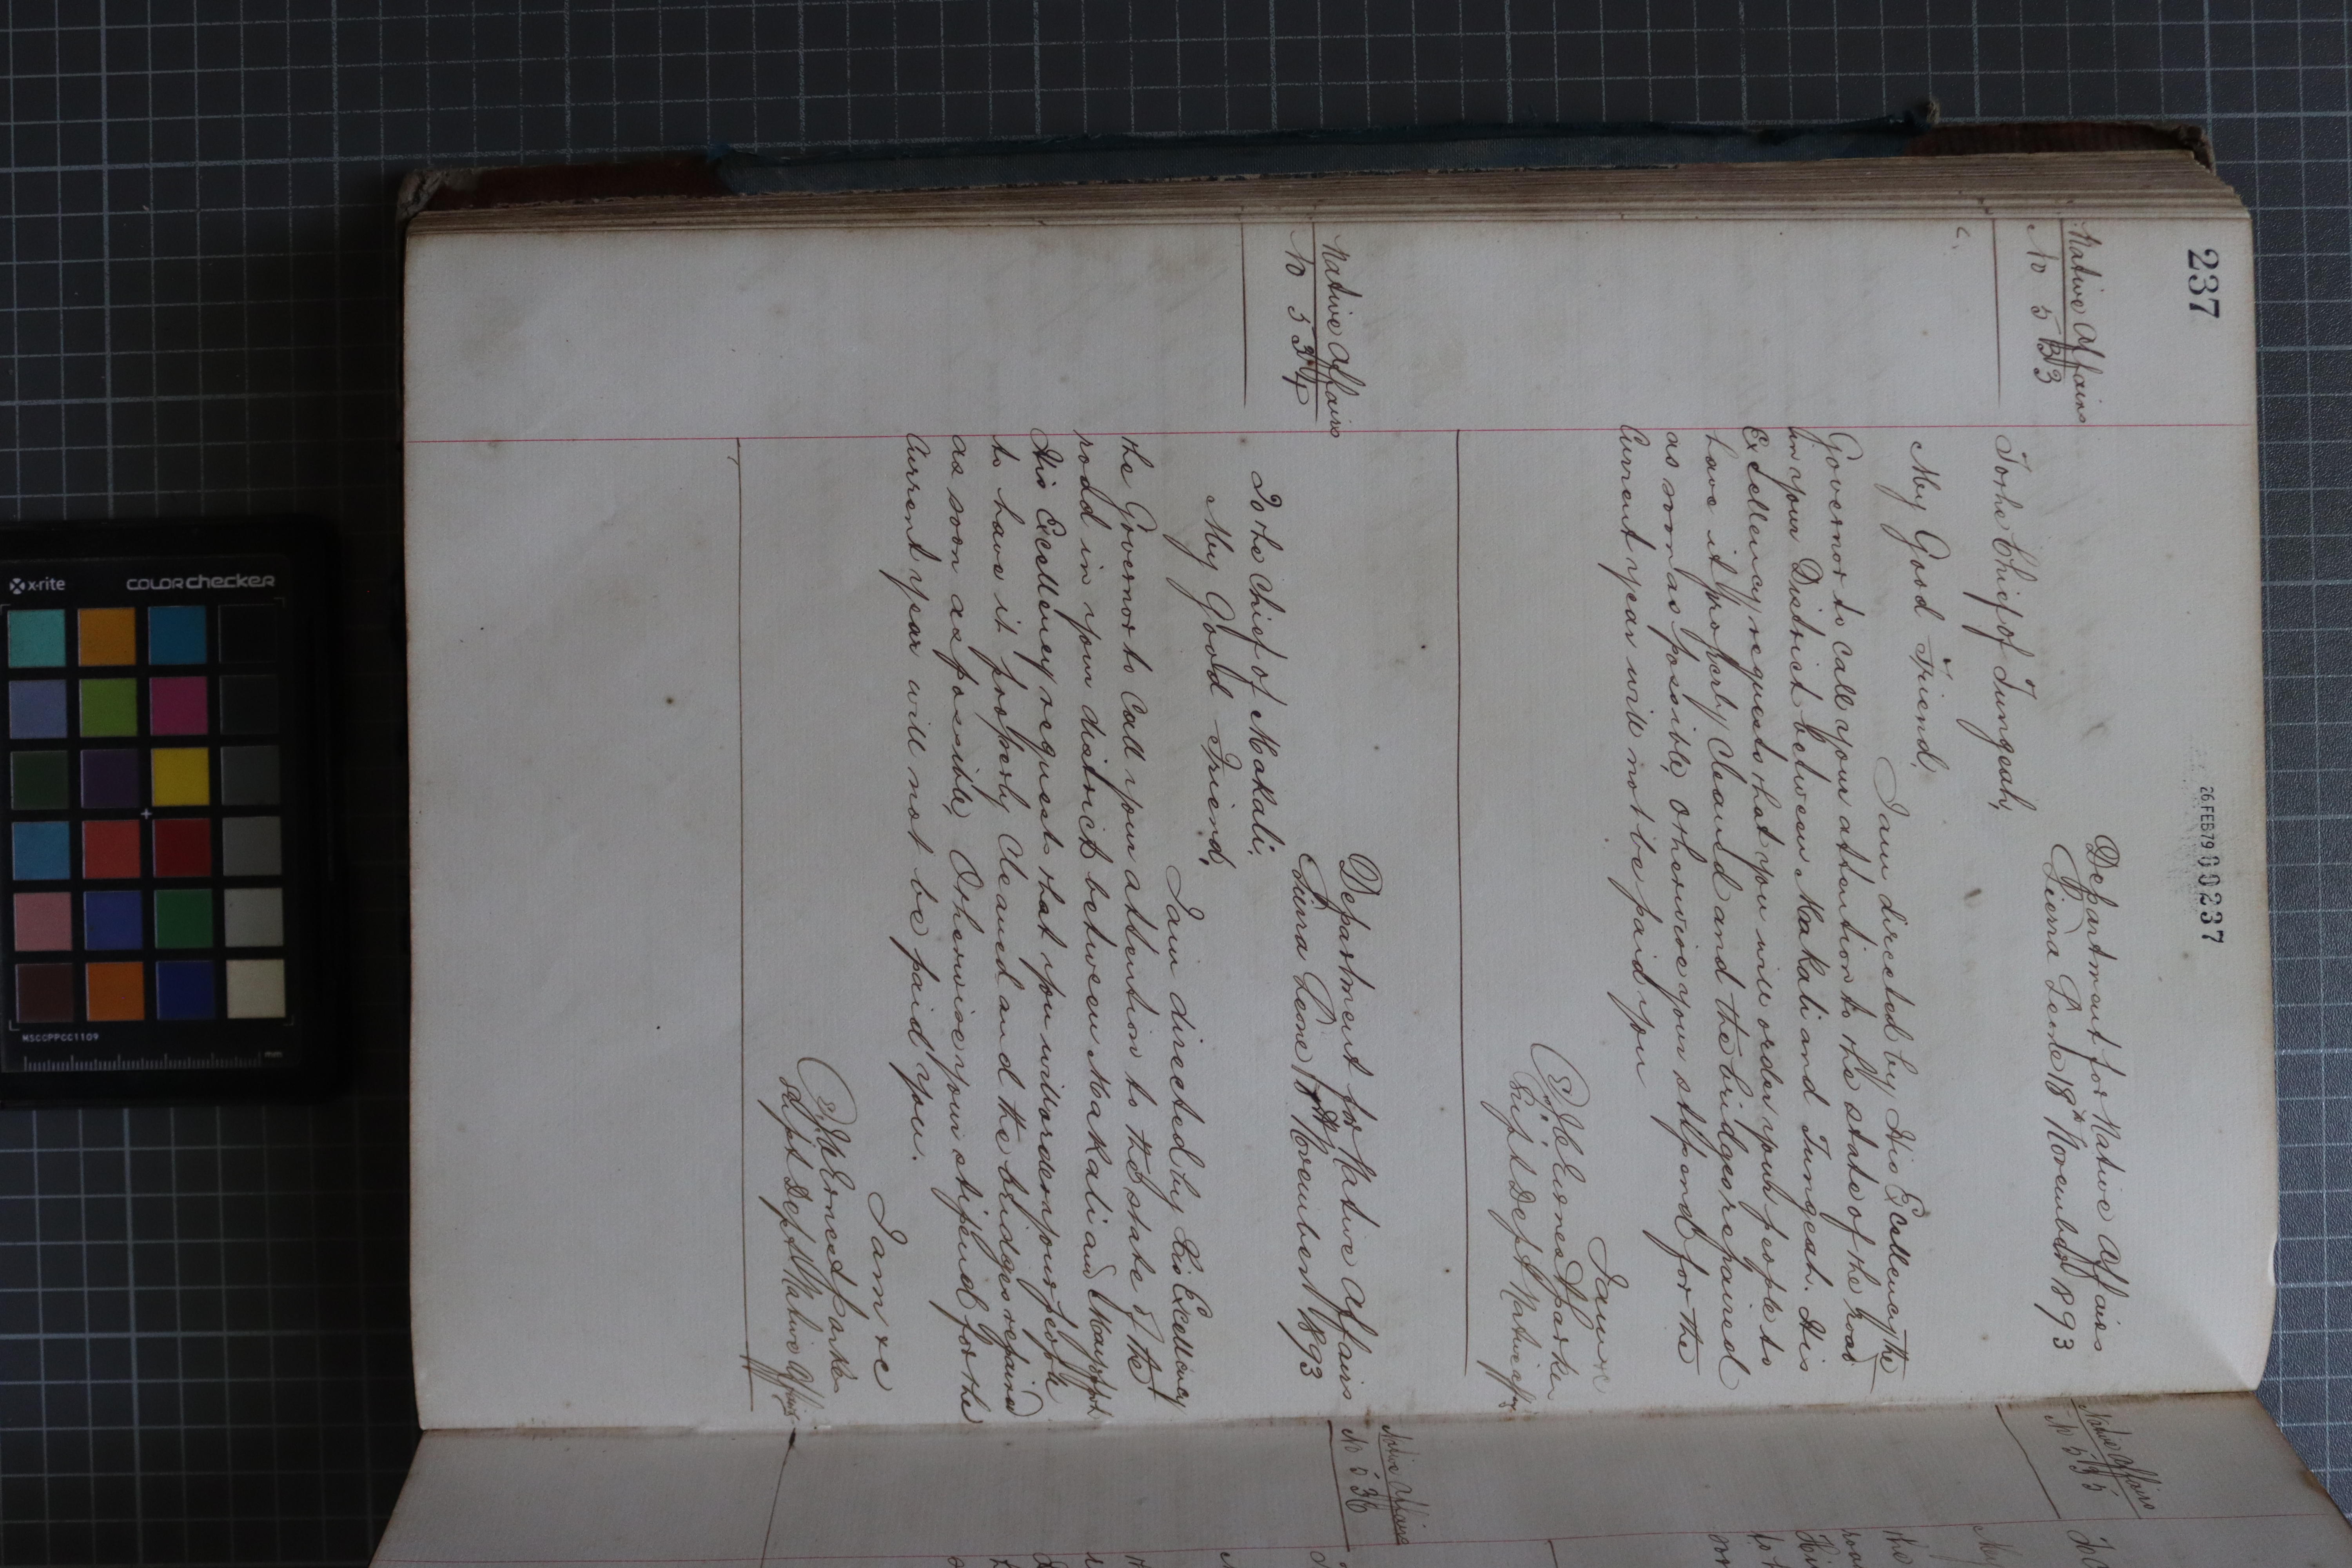 237
26 FEB 79 00237
Native Affairs
No 533
Department for Native Affairs
Sierra Leone 18th November 1893
To the Chief of Tungeah,
My Good Friend,
I am directed by His Excellency the
Governor to call your attention to the state of the road
in your District between Makali and Tungeah. His
Excellency requests that you will order your people to
have it properly cleaned and the bridges repaired
as soon as possible, otherwise your stipend for the
Current year will not be paid you
I am &c
Ernest Parkes
Supt Dept Native Affrs
Native Affairs
No 534
Department for Native Affairs
Sierra Leone 18th November 1893
To the Chief of Makali,
My Good Friend,
I am directed by His Excellency
the Governor to call your attention to the state of the
road in your district between Makali and
His Excellency requests that you will order your people
to have it properly Cleaned and the bridges repaired
as soon as possible, Otherwise your stipend for the
Current year will not be paid you.
I am &c
Ernest Parkes
Supt Dept Native Affairs
Native Affairs
No 535
Native Affairs
No 536
x-rite
colorchecker
MSCCPPCC1109
mm